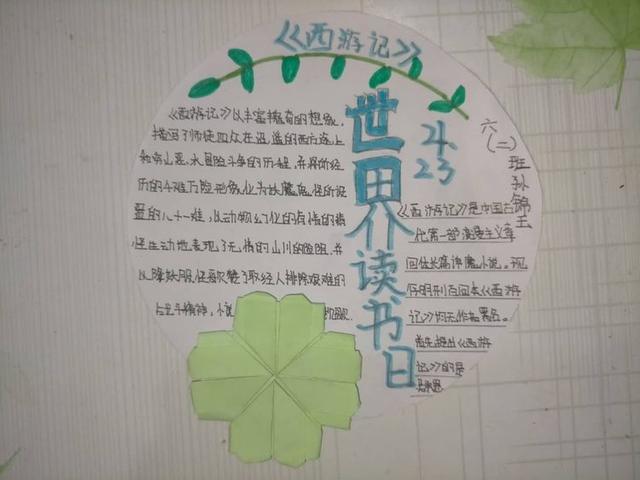 《西游记》
世界读书日
4.23
六(二)班孙锦玉
《西游记》以丰富瑰奇的想象,
描写了师徒四众在迢遥的西方途上
和穷山恶水冒险斗争的历程,并将所经
历的千难万险形象化为妖魔鬼怪所设
置的八十一难,以动物幻化的有情的精
怪生动地表现了无情的山川的险阻,并
以降妖服怪歌赞了取经人排除艰难的
斗精神,小说
《西游记》是中国古
代第一部浪漫主义章
回体长篇神魔小说。现
存明刊百回本《西游
记》均无作者署名。
首先提出《西游
记》的是